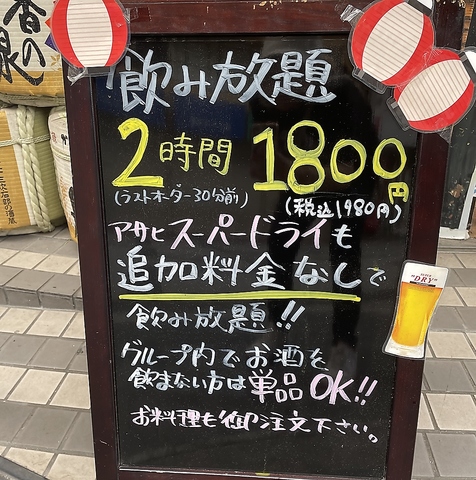 飲み放題
2時間 1800円
(ラストオーダー30分前)
(税込1980円)
アサヒスーパードライも
追加料金なしで
飲み放題!!
グループ内でお酒を
飲まない方は単品OK!!
お料理も御注文下さい。
DRY
香の泉